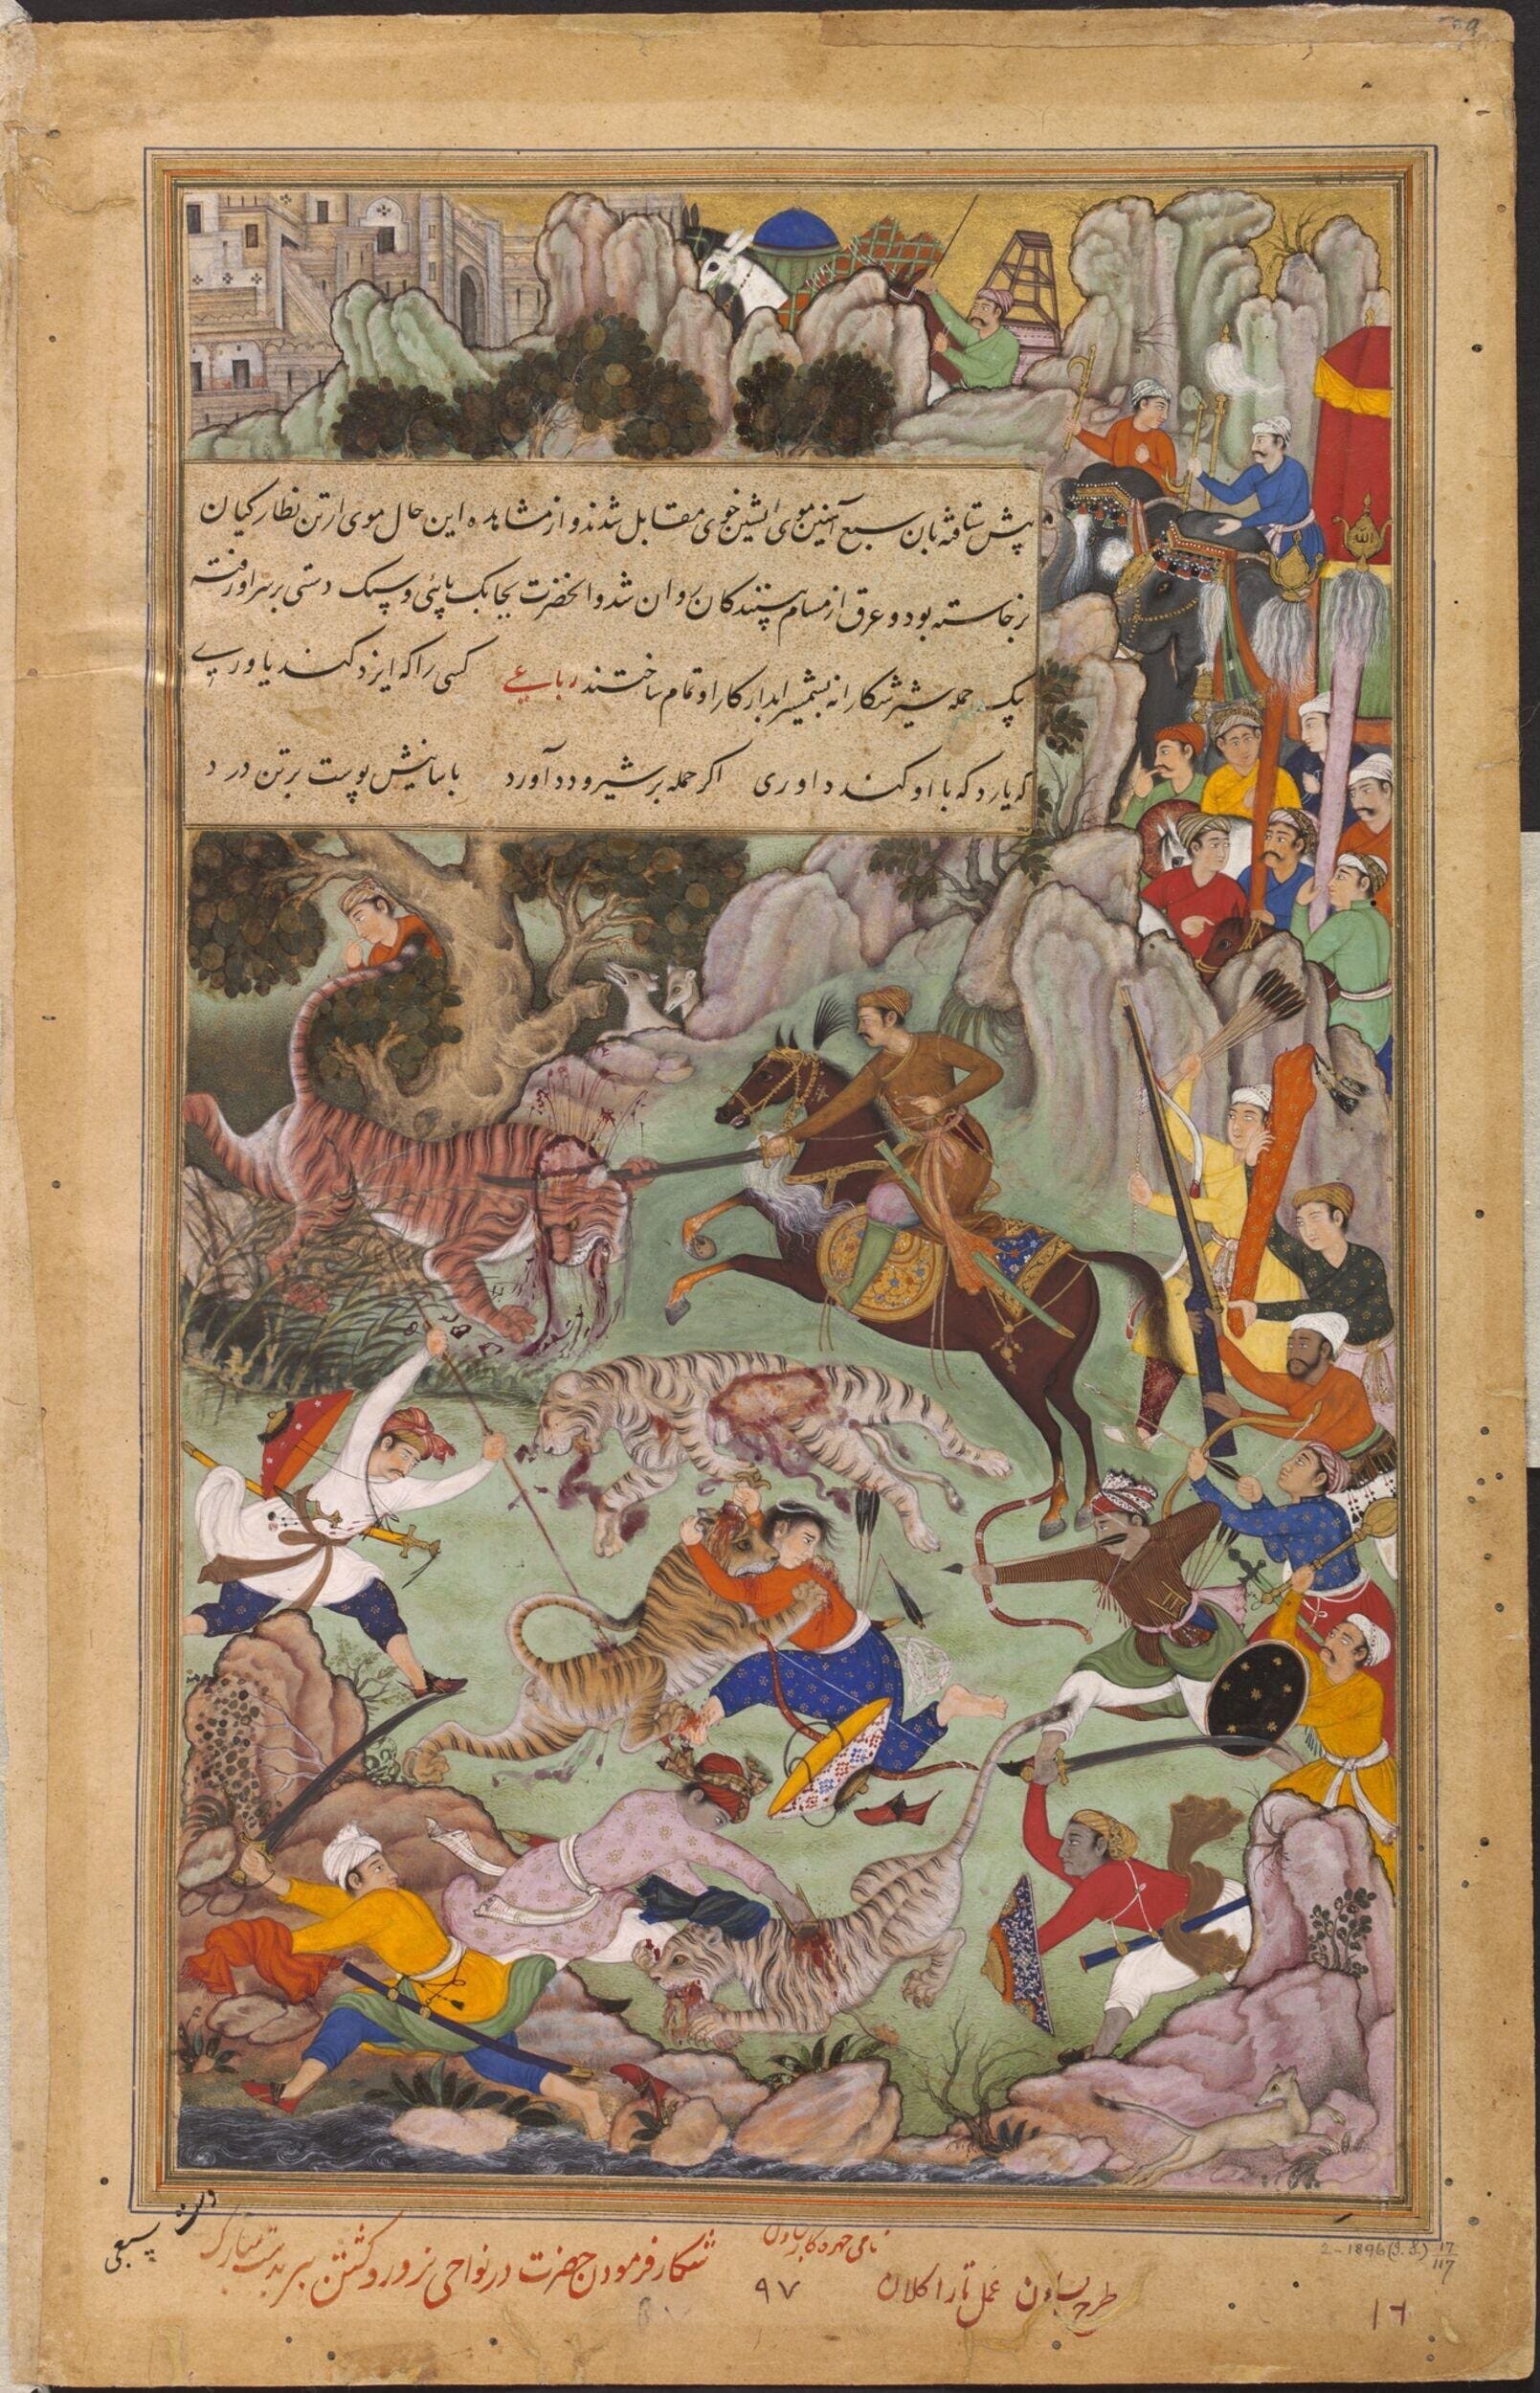 پیش شتافته بآن سبع آهنین موی آتشین خوی مقابل شدند و از مشاهده این حال موی از تن نظارکیان
برخاسته بود و عرق از مسام بینندکان روان شد و آنحضرت بچابک پائی و سبک دستی بر سر او رفته
بیک حمله شیر شکارانه بشمشیر ابدار کار او تمام ساختند رباعی کسی را که ایزد کند یاوری
که یارد که با او کند داوری اکر حمله بر شیر و دد آورد باسانیش پوست بر تن درد
الله
شکار فرمودن حضرت در نواحی نرور و کشتن ببر بدست مبارک
نامی چهره کار بساون
طرح بساون عمل تارا کلان
۹۷
2-1896(I.S.) 17/117
۱۶